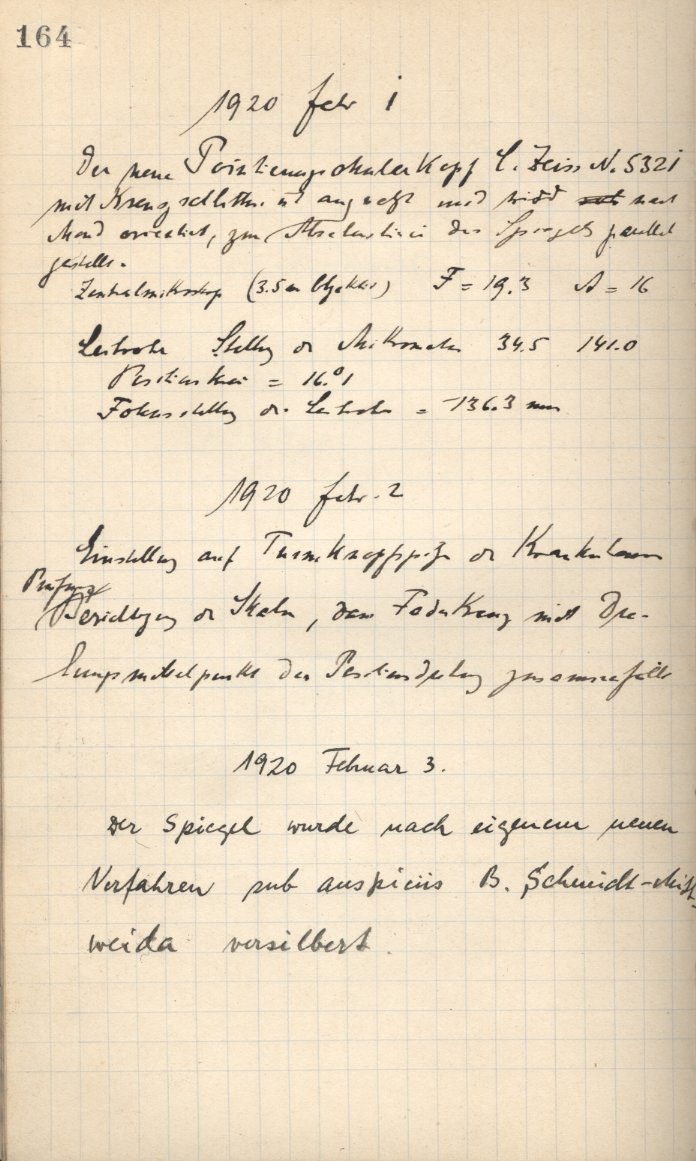 164
1920 Febr 1
Der neue Pointierungsokularkopf C. Zeiss N. 5321
mit Kreuzschlitten ist angesetzt und wird nach
Mond orientiert, zur des Spiegels parallel
gestellt.
Zentralmikroskop (3.5 cm Objektiv) F = 19.3 A = 16
Leitrohr Stellung der Mikrometer 34.5 141.0
Positionskreis = 16.°1
Fokusstellung des Leitrohrs = 136.3 mm
1920 Febr. 2
Einstellung auf Turmknopfspitze des Krankenhauses
Prüfung
Berichtigung der Skalen, dass Fadenkreuz mit Dre-
hungsmittelpunkt der Positionsdrehung zusammenfällt
1920 Februar 3.
Der Spiegel wurde nach eigenem neuen
Verfahren sub auspiciis B. Schmidt-Mitt-
weida versilbert.